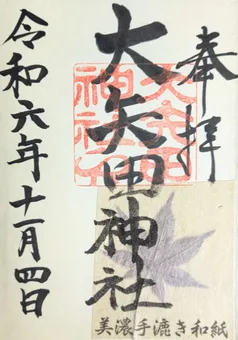 奉拝
大矢田神社
大矢田神社
令和六年十一月四日
美濃手漉き和紙